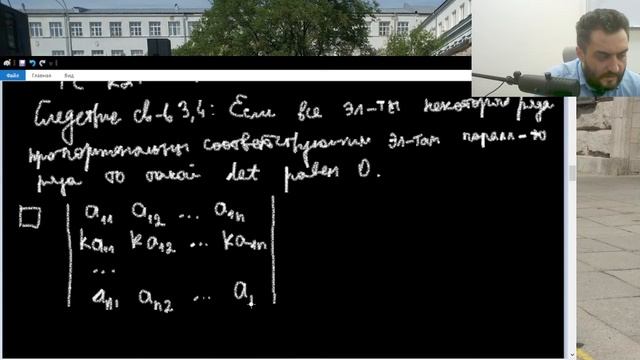 Файл Главная Вид
Следствие св-в 3,4: Если все эл-ты некоторого ряда
пропорциональны соответствующим эл-там паралл-го
ряда то такой det равен 0.
□ | a₁₁ a₁₂ ... a₁ₙ |
| ka₁₁ ka₁₂ ... ka₁ₙ |
| ... |
| aₙ₁ aₙ₂ ... a |